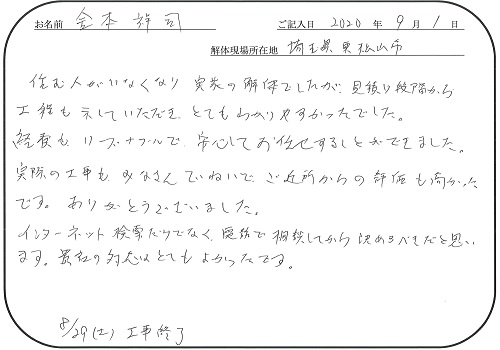 お名前 金本 許司 ご記入日 2020 年 9 月 1 日
解体現場所在地 埼玉県東松山市
住む人がいなくなり 実家の解体でしたが、見積り段階から
工程も示していただき、とてもわかりやすかったでした。
経費も リーズナブルで、安心して お任せすることができました。
実際の工事も みなさん ていねいで ご近所からの 評価も高かった
です。ありがとうございました。
インターネット 検索だけでなく、電話で 相談してから 決めるべきだと思い
ます。貴社の対応は とても よかったです。
8/29(土) 工事終了